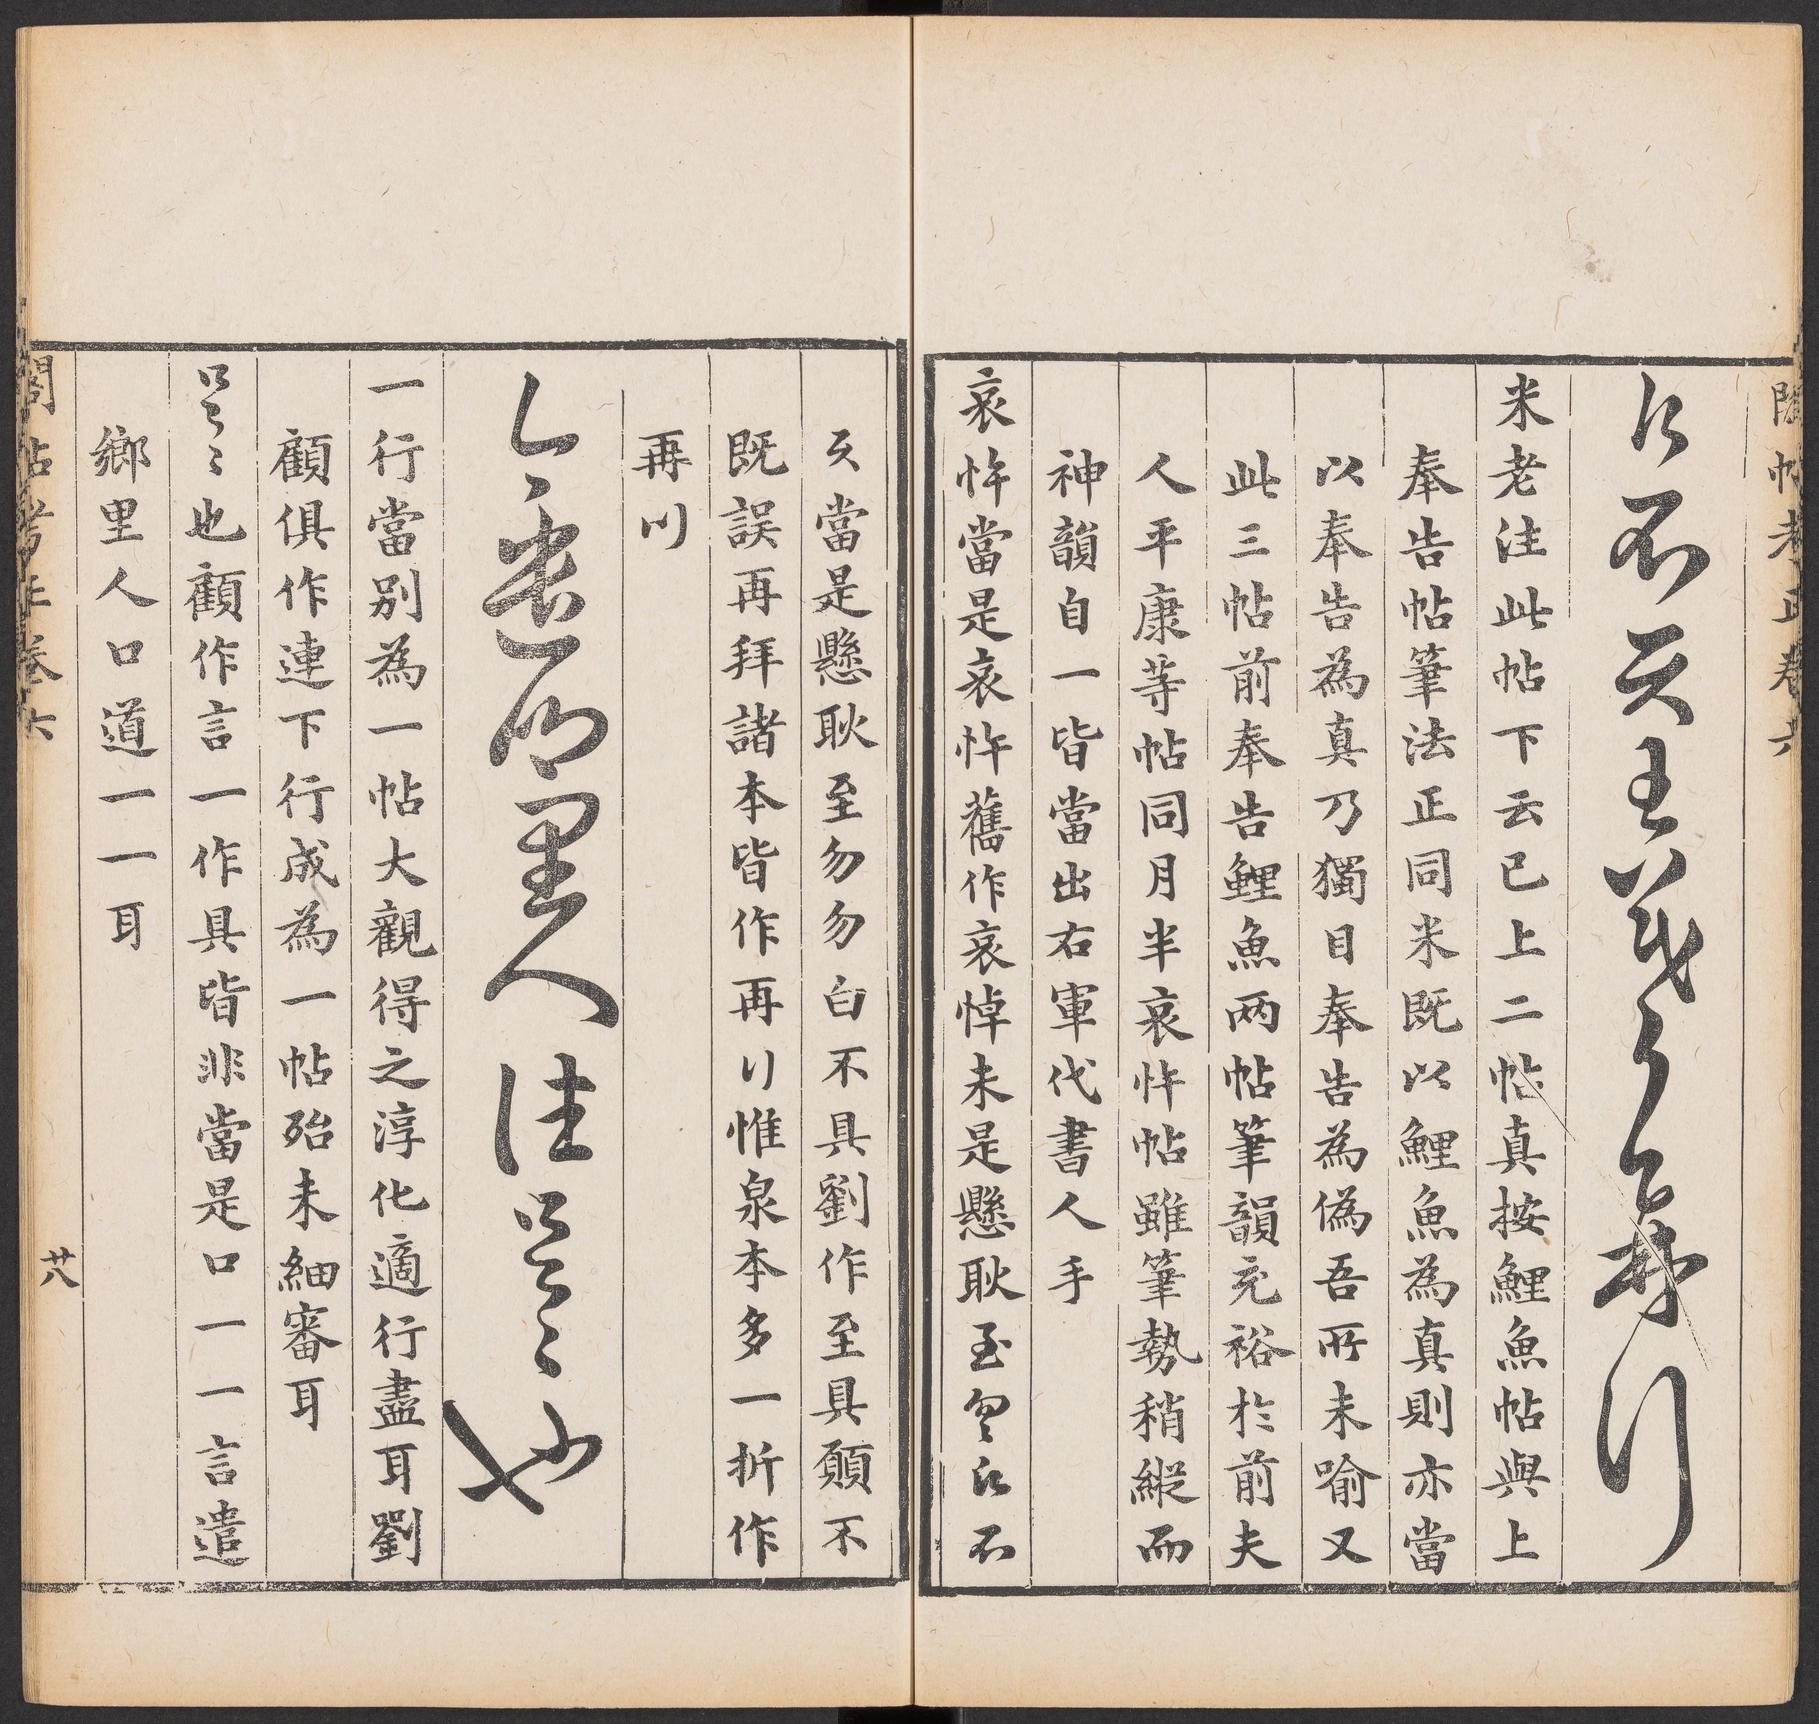 白不具王羲之再行
米老注此帖下云已上二帖真按鯉魚帖與上
奉告帖筆法正同米既以鯉魚為真則亦當
以奉告為真乃獨目奉告為偽吾所未喻又
此三帖前奉告鯉魚兩帖筆韻充裕於前夫
人平康等帖同月半哀忤帖雖筆勢稍縱而
神韻自一皆當出右軍代書人手
哀忤當是哀忤舊作哀悼未是懸耿至
當是懸耿至勿勿白不具劉作至具願不
既誤再拜諸本皆作再刂惟泉本多一折作
再川
鄉里人
一行當別為一帖大觀得之淳化適行盡耳劉
顧俱作連下行成為一帖殆未細審耳
也顧作言一作具皆非當是口一一言遣
鄉里人口道一一耳
閣帖考正卷六
廿八